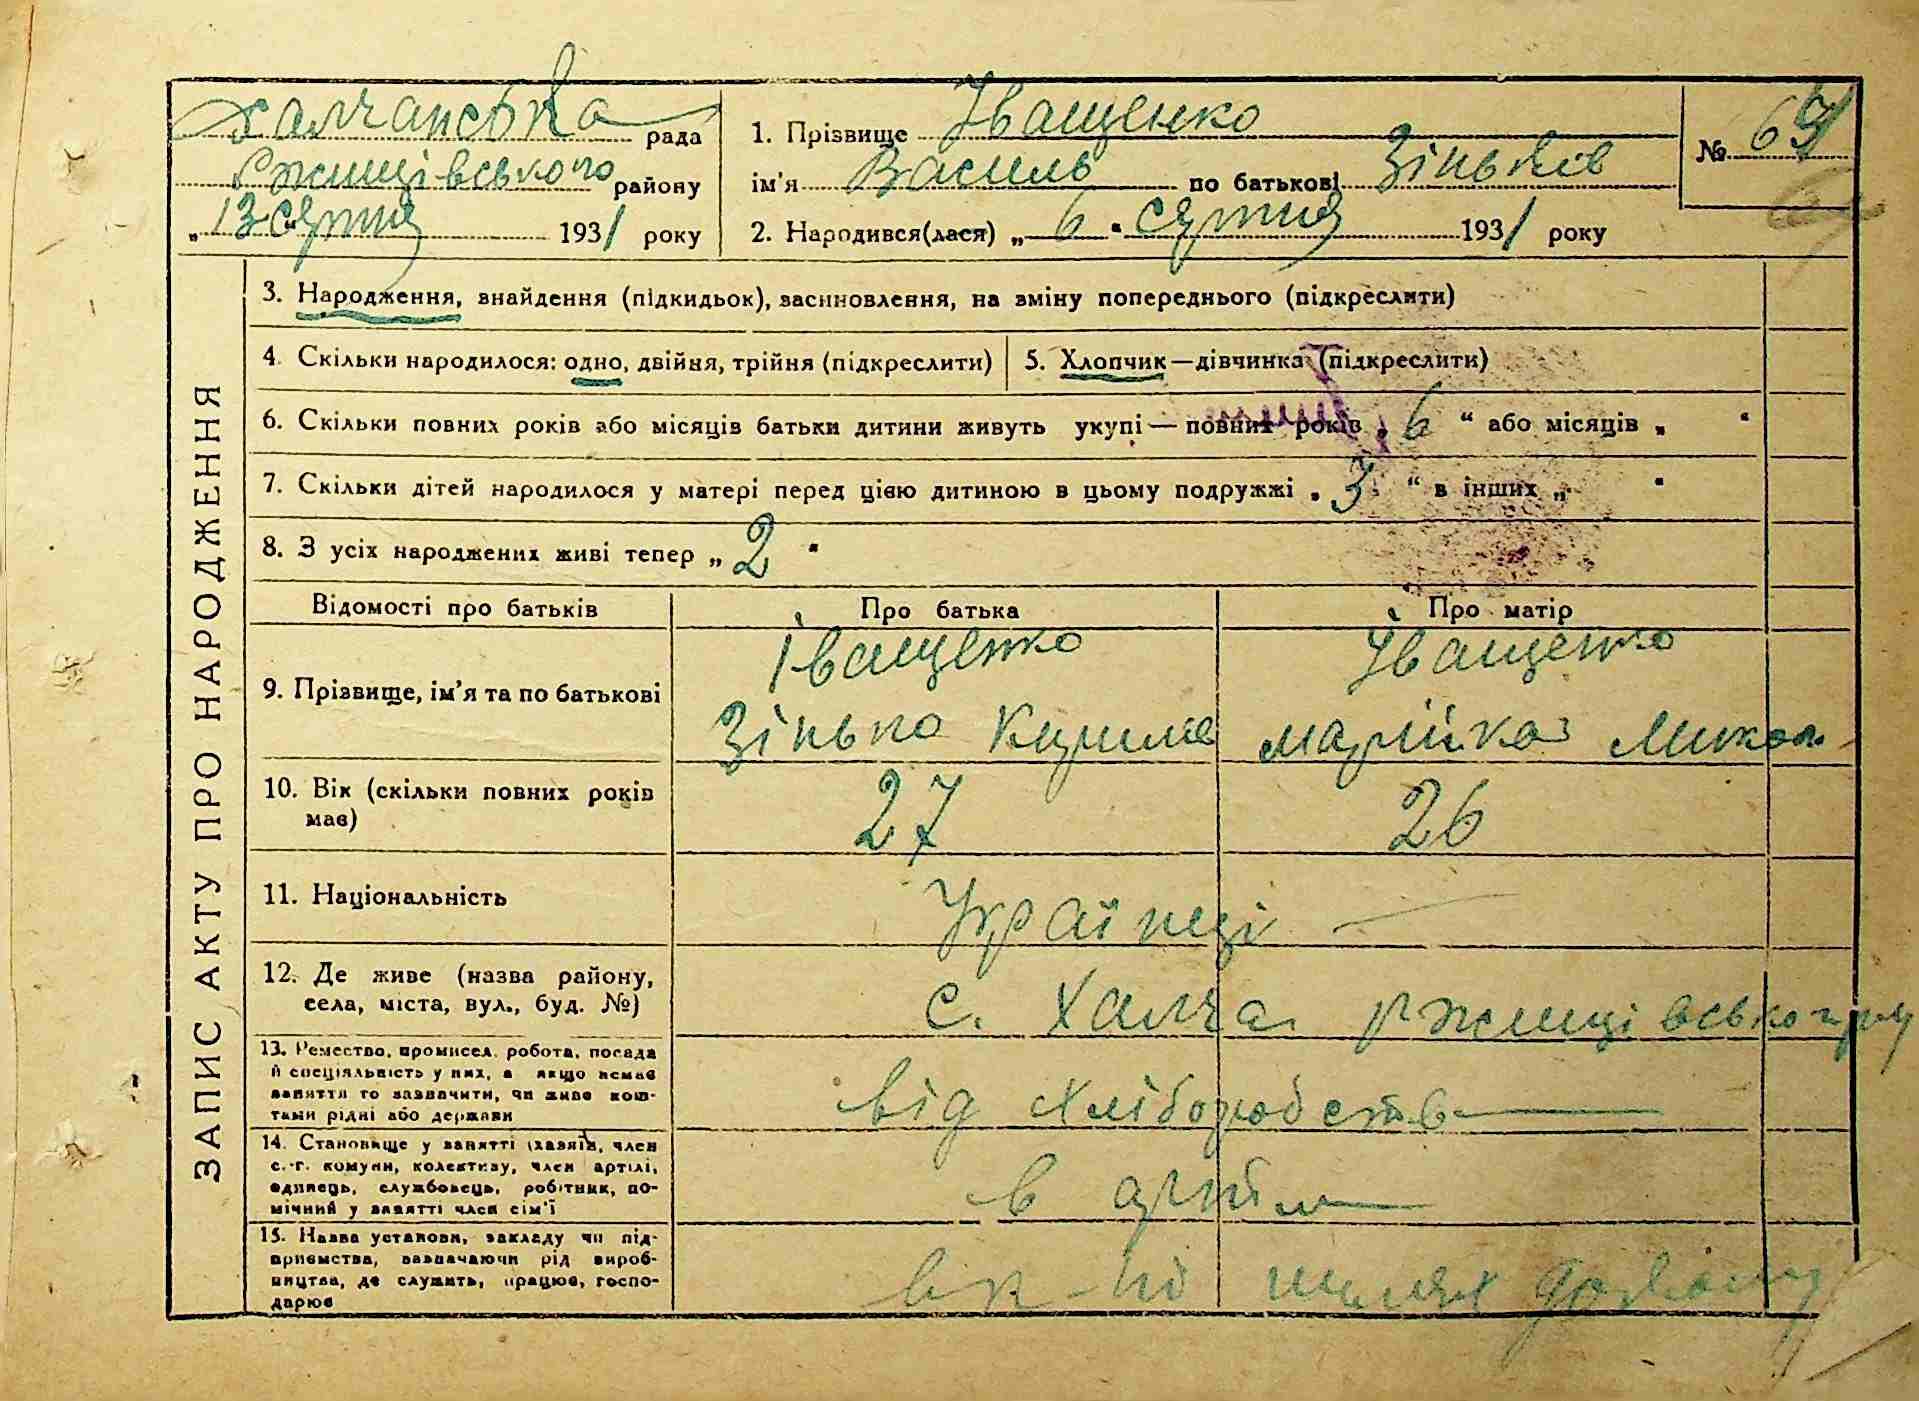 Халчанська рада
Ржищівського району
„13" серпня 1931 року
1. Прізвище Іващенко
ім'я Василь по батькові Зіньків
2. Народився(лася) „6" серпня 1931 року
№ 69
ЗАПИС АКТУ ПРО НАРОДЖЕННЯ
3. Народження, знайдення (підкидьок), засиновлення, на зміну попереднього (підкреслити)
4. Скільки народилося: одно, двійня, трійня (підкреслити)
5. Хлопчик—дівчинка (підкреслити)
6. Скільки повних років або місяців батьки дитини живуть укупі — повних років „6" або місяців „ "
7. Скільки дітей народилося у матері перед цією дитиною в цьому подружжі „3" в інших „ "
8. З усіх народжених живі тепер „2"
Відомості про батьків
Про батька
Про матір
9. Прізвище, ім'я та по батькові
Іващенко
Зінько Кирилів
Іващенко
Марійка Микол.
10. Вік (скільки повних років має)
27
26
11. Національність
Українці —
12. Де живе (назва району,
села, міста, вул., буд. №)
с. Халча Ржищівського р-ну
13. Ремество, промисел, робота, посада
й спеціяльність у них, а якщо немає
заняття то зазначити, чи живе кош-
тами рідні або держави
від хліборобств—
14. Становище у занятті (хазяїн, член
с.-г. комуни, колективу, член артілі,
одинець, службовець, робітник, по-
мічний у занятті член сім'ї
в артіл—
15. Назва установи, закладу чи під-
приємства, зазначаючи рід вироб-
ництва, де служить, працює, госпо-
дарює
шлях